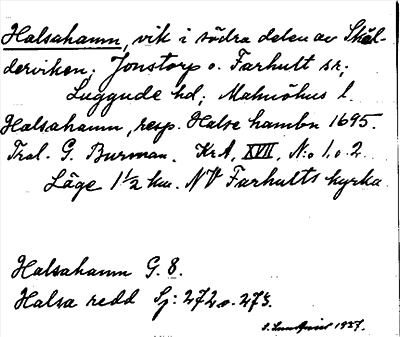 Halsahamn, vik i södra delen av Skäl-
derviken; Jonstorp o. Farhult sn;
Luggude hd; Malmöhus l.
Halsahamn, resp. Halse hambn 1695.
Tral. G. Burman. KrA, XVII, N:o 1 o. 2.
Läge 1 1/2 km. NV Farhults kyrka.
Halsahamn G. 8.
Halsa redd Sj: 272 o. 273.
1937.